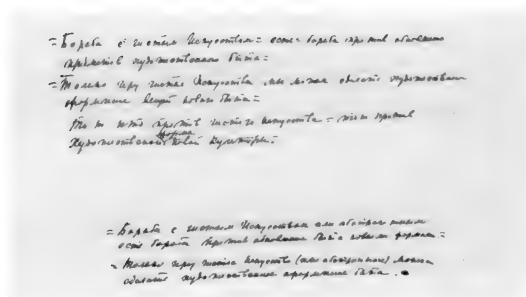 = Борьба с чистым Искусством = есть = борьба против обновления
предметов художественного быта =
= Только при чистом Искусстве мы можем сделать художественным
оформление вещей нового быта =
Тот кто против чистого искусства = тот против
форм
Художественной новой культуры =
= Борьба с чистым Искусством или абстрактным
есть борьба против обновления быта новыми формами =
= Только при чистом искусстве (или абстрактном) можно
сделать художественное оформление быта.